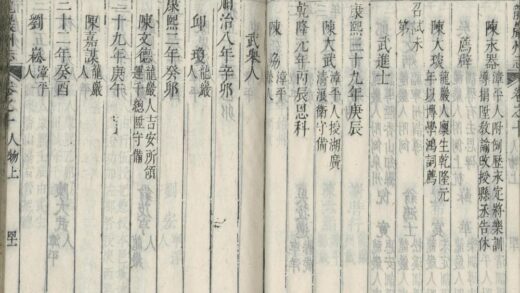 龍巖州志 卷之十
陳永器 漳平人附例歷永定將樂訓
導捐陞教諭改授縣丞告休
薦辟
陳大琰 龍巖人廩生乾隆元
年以博學鴻詞薦
召試未
第
武進士
康熙三十九年庚辰
陳大武 漳平人授湖廣
清浪衛守備
乾隆元年丙辰恩科
陳 漳平人
武舉人
順治八年辛卯
邱瓊 龍巖人
康熙二年癸卯
陳文德 龍巖人吉安所領
運千總陞守備
二十九年庚午
陳嘉謨 龍巖人
三十二年癸酉
劉嵩 漳平人
州志 卷之十 人物上